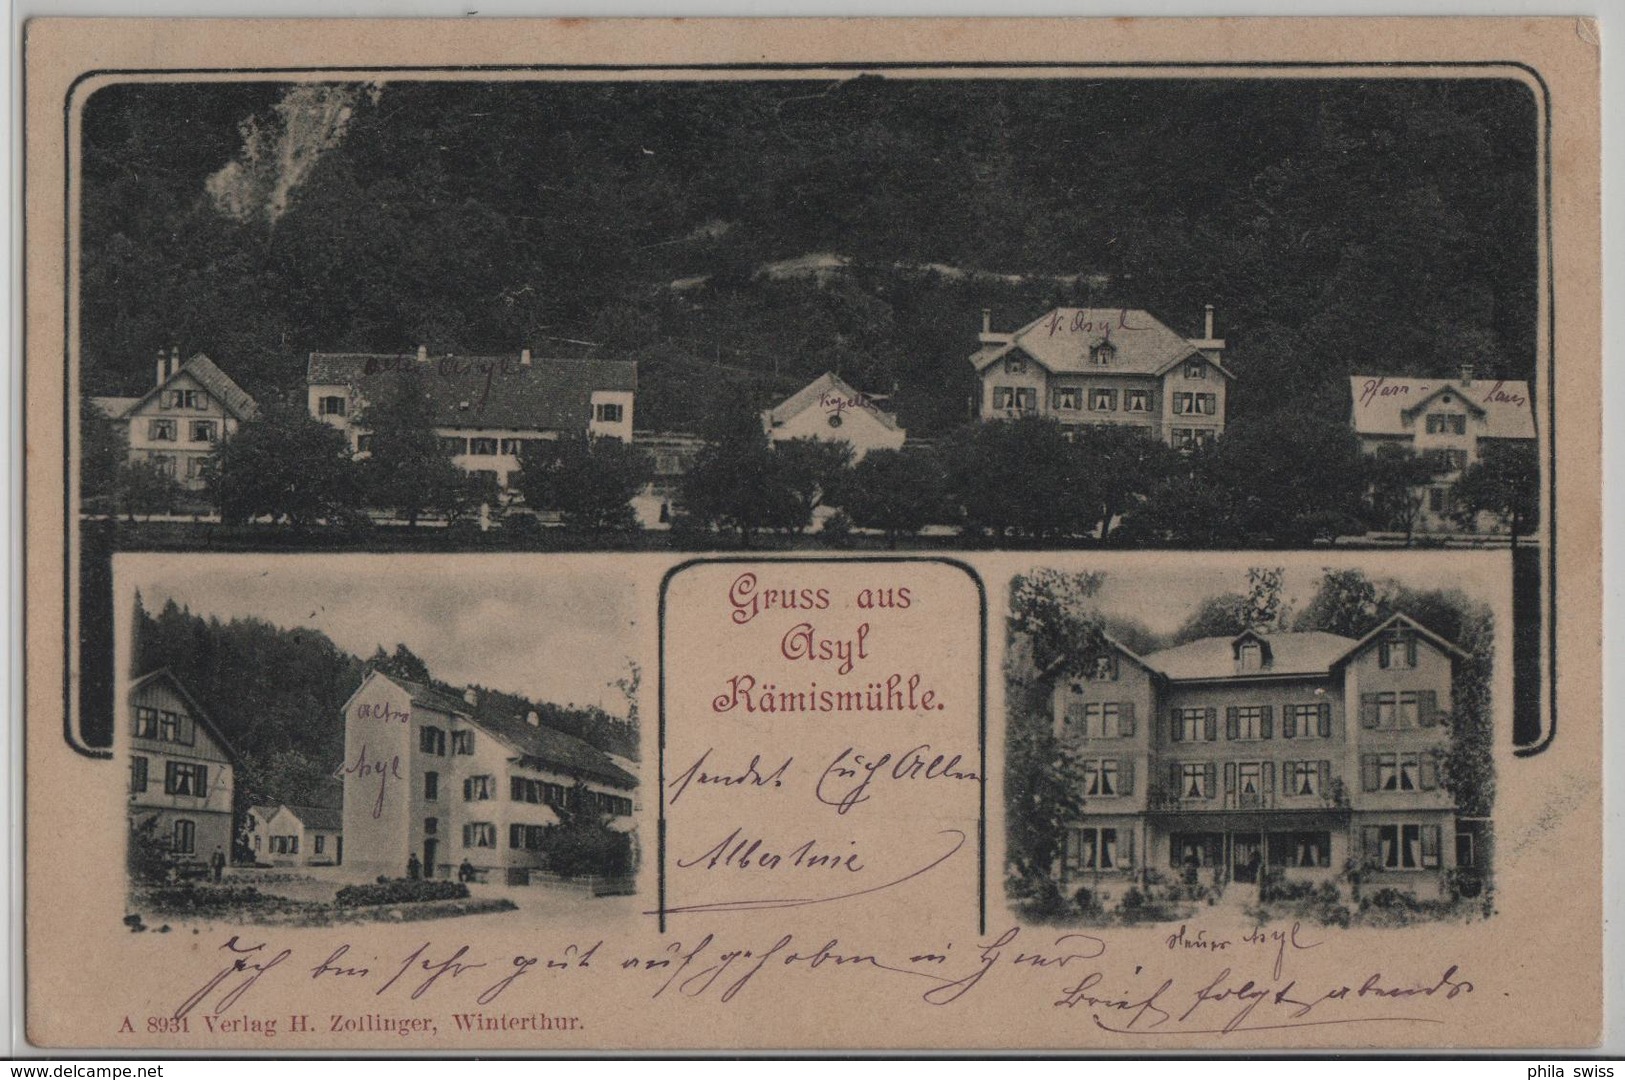 N. Asyl
Altes Asyl
Kapelle
Pfarr-haus
Gruss aus
Asyl
Rämismühle.
Altes
Asyl
sendet Euch Allen
Albertine
Neues Asyl
Ich bin sehr gut aufgehoben in hier,
Brief folgt abends.
A 8931 Verlag H. Zollinger, Winterthur.
delcampe.net
phila swiss